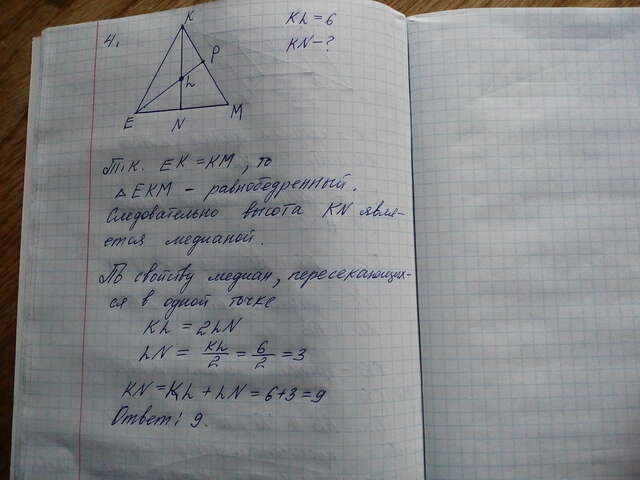 4.
K
P
L
E
N
M
KL = 6
KN - ?
Т.к. EK = KM, то
△ EKM - равнобедренный.
Следовательно высота KN явля-
ется медианой.
По свойству медиан, пересекающих-
ся в одной точке
KL = 2LN
LN = KL/2 = 6/2 = 3
KN = KL + LN = 6+3 = 9
Ответ: 9.